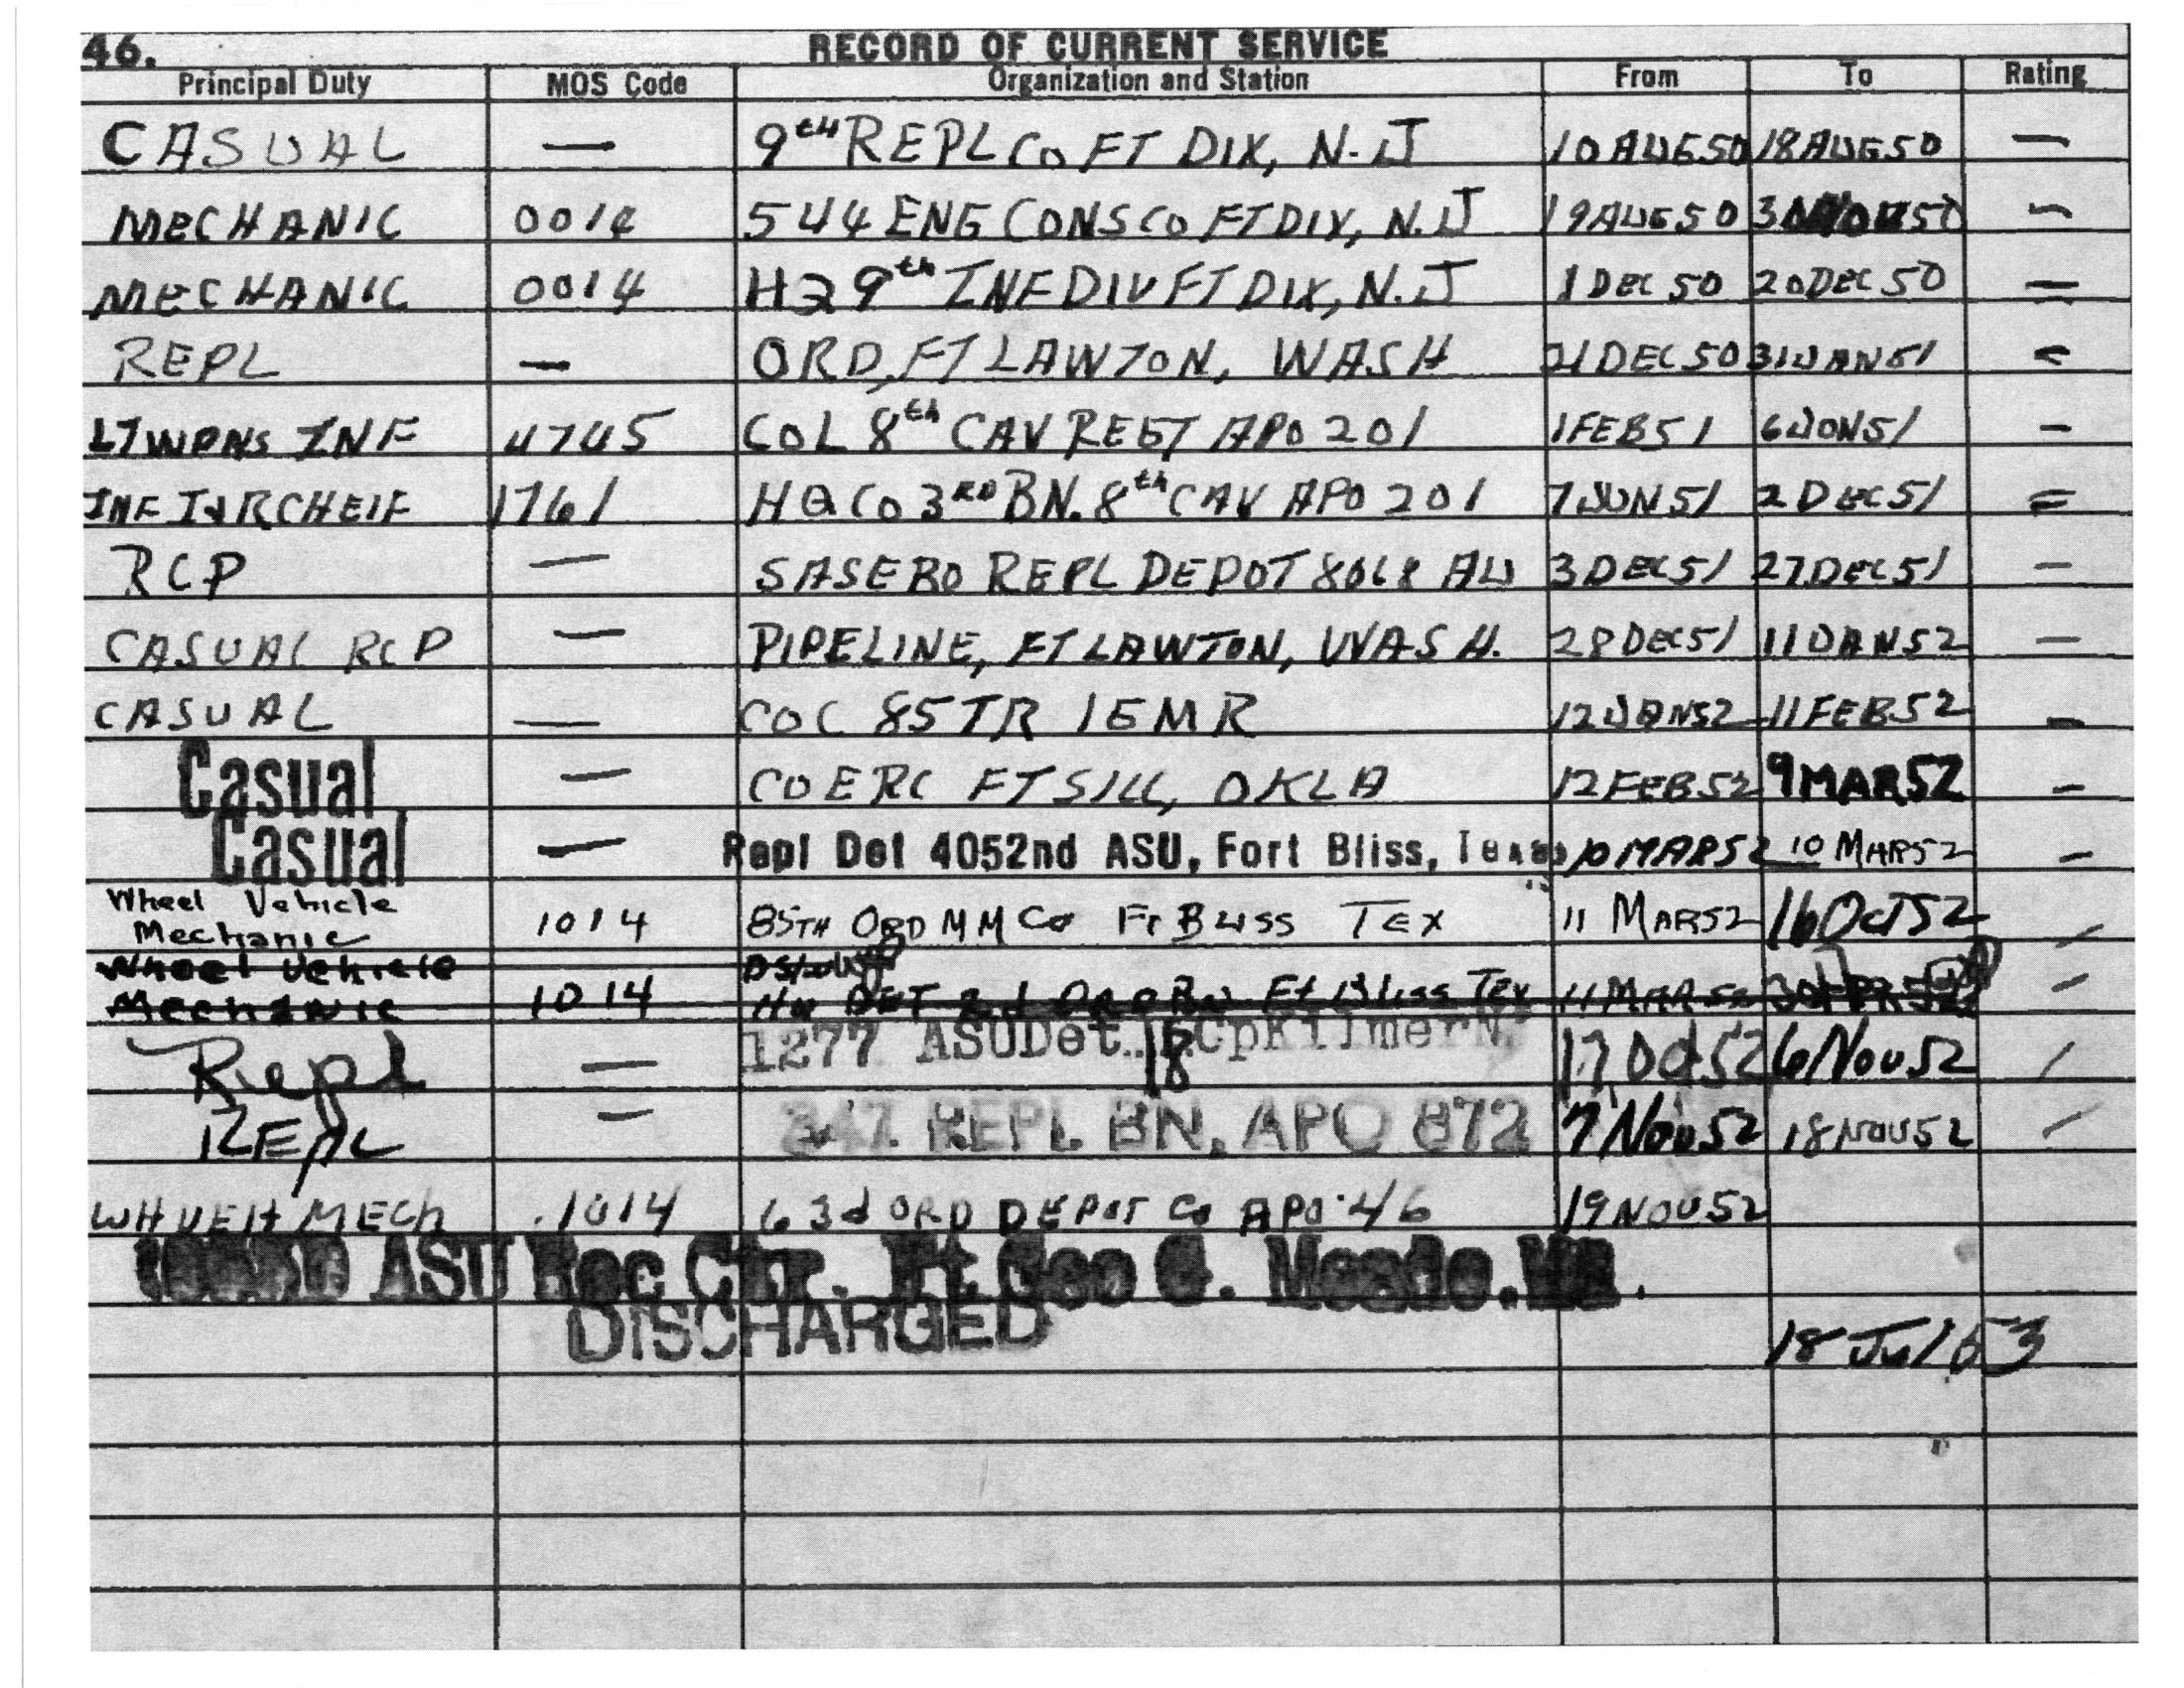 46. RECORD OF CURRENT SERVICE
Principal Duty MOS Code Organization and Station From To Rating
CASUAL — 9th REPL Co FT DIX, N.J 10 AUG 50 18 AUG 50 —
MECHANIC 0014 544 ENG CONS CO FT DIX, N.J 19 AUG 50 30 NOV 50 —
MECHANIC 0014 HQ 9th INF DIV FT DIX, N.J 1 DEC 50 20 DEC 50 =
REPL — ORD, FT LAWTON, WASH 21 DEC 50 31 JAN 51
LT WPNS INF 4745 CO L 8th CAV REGT APO 201 1 FEB 51 6 JUN 51 —
INF CHEIF 1761 HQ Co 3RD BN. 8th CAV APO 201 7 JUN 51 2 DEC 51 =
RCP — SASEBO REPL DEPOT 8068 AU 3 DEC 51 27 DEC 51 —
CASUAL RCP — PIPELINE, FT LAWTON, WASH. 28 DEC 51 11 JAN 52 —
CASUAL — CO C 85 TR 12 JAN 52 11 FEB 52 —
Casual — CO E RC FT SILL, OKLA 12 FEB 52 9 MAR 52 —
Casual — Repl Det 4052nd ASU, Fort Bliss, Texas 10 MAR 52 10 MAR 52 —
Wheel Vehicle
Mechanic 1014 85TH ORD MM Co Ft Bliss Tex 11 MAR 52 16 Oct 52 —
Wheel Vehicle
Mechanic 1014 DET Ord Bn Ft Bliss Tex 11 MAR 52 —
Repl — 1277 ASU Det. Cp Kilmer N. 17 Oct 52 6 Nov 52 /
REPL — 347 REPL BN, APO 872 7 Nov 52 18 NOV 52 /
WH VEH MECH 1014 63d ORD DEPOT Co APO 46 19 NOV 52
ASU Rec Ctr. Ft Geo G. Meade. Md.
DISCHARGED 18 Jul 53